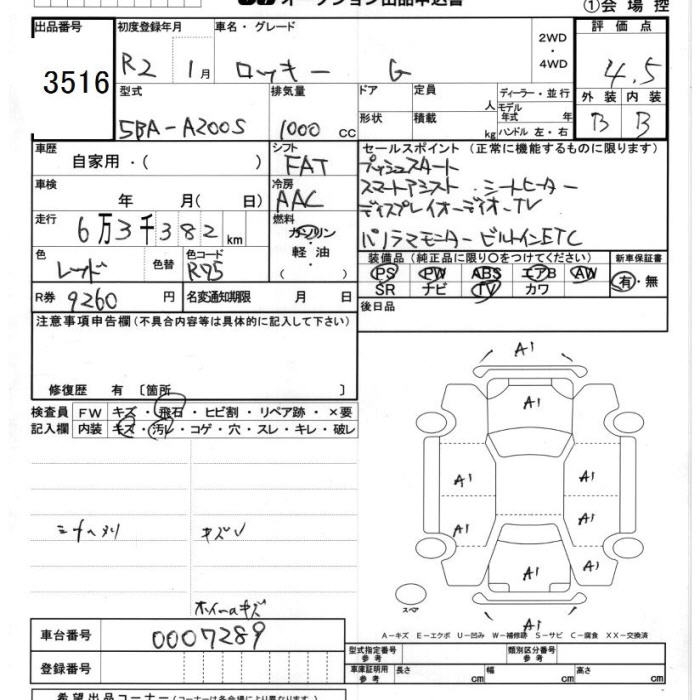 オークション出品申込書
①会場控
出品番号
3516
初度登録年月
R2 1月
車名・グレード
ロッキー G
2WD
・
4WD
評価点
4.5
外装 内装
B B
型式
5BA-A200S
排気量
1000 cc
ドア
定員
人
形状
積載
kg
ディーラー・並行
モデル年式 年
ハンドル 左・右
車歴
自家用・( )
シフト
FAT
車検
年 月( 日)
冷房
AAC
走行
6万3千382km
燃料
ガソリン
・
軽油
( )
色
レッド
色替
色コード
R75
R券
9260 円
名変通知期限 月 日
セールスポイント (正常に機能するものに限ります)
プッシュスタート
スマートアシスト・シートヒーター
ディスプレイオーディオ・TV
パノラマモニター ビルトインETC
装備品(純正品に限り○をつけてください)
PS PW ABS エアB AW
SR ナビ TV カワ
新車保証書
有・無
後日品
注意事項申告欄(不具合内容等は具体的に記入して下さい)
修復歴 有〔箇所 〕
検査員
記入欄
FW キズ・飛石・ヒビ割・リペア跡・×要
内装 キズ・汚レ・コゲ・穴・スレ・キレ・破レ
シートヘタリ
キズV
ホイールキズ
A1
A1
A1 A1
A1 A1
A1 A1
A1
スペア
A-キズ E-エクボ U-凹み W-補修跡 S-サビ C-腐食 XX-交換済
車台番号
0007289
登録番号
型式指定番号
参考
類別区分番号
参考
車庫証明用
参考
長さ cm 幅 cm 高さ cm
希望出品コーナー(コーナーは各会場により異なります)